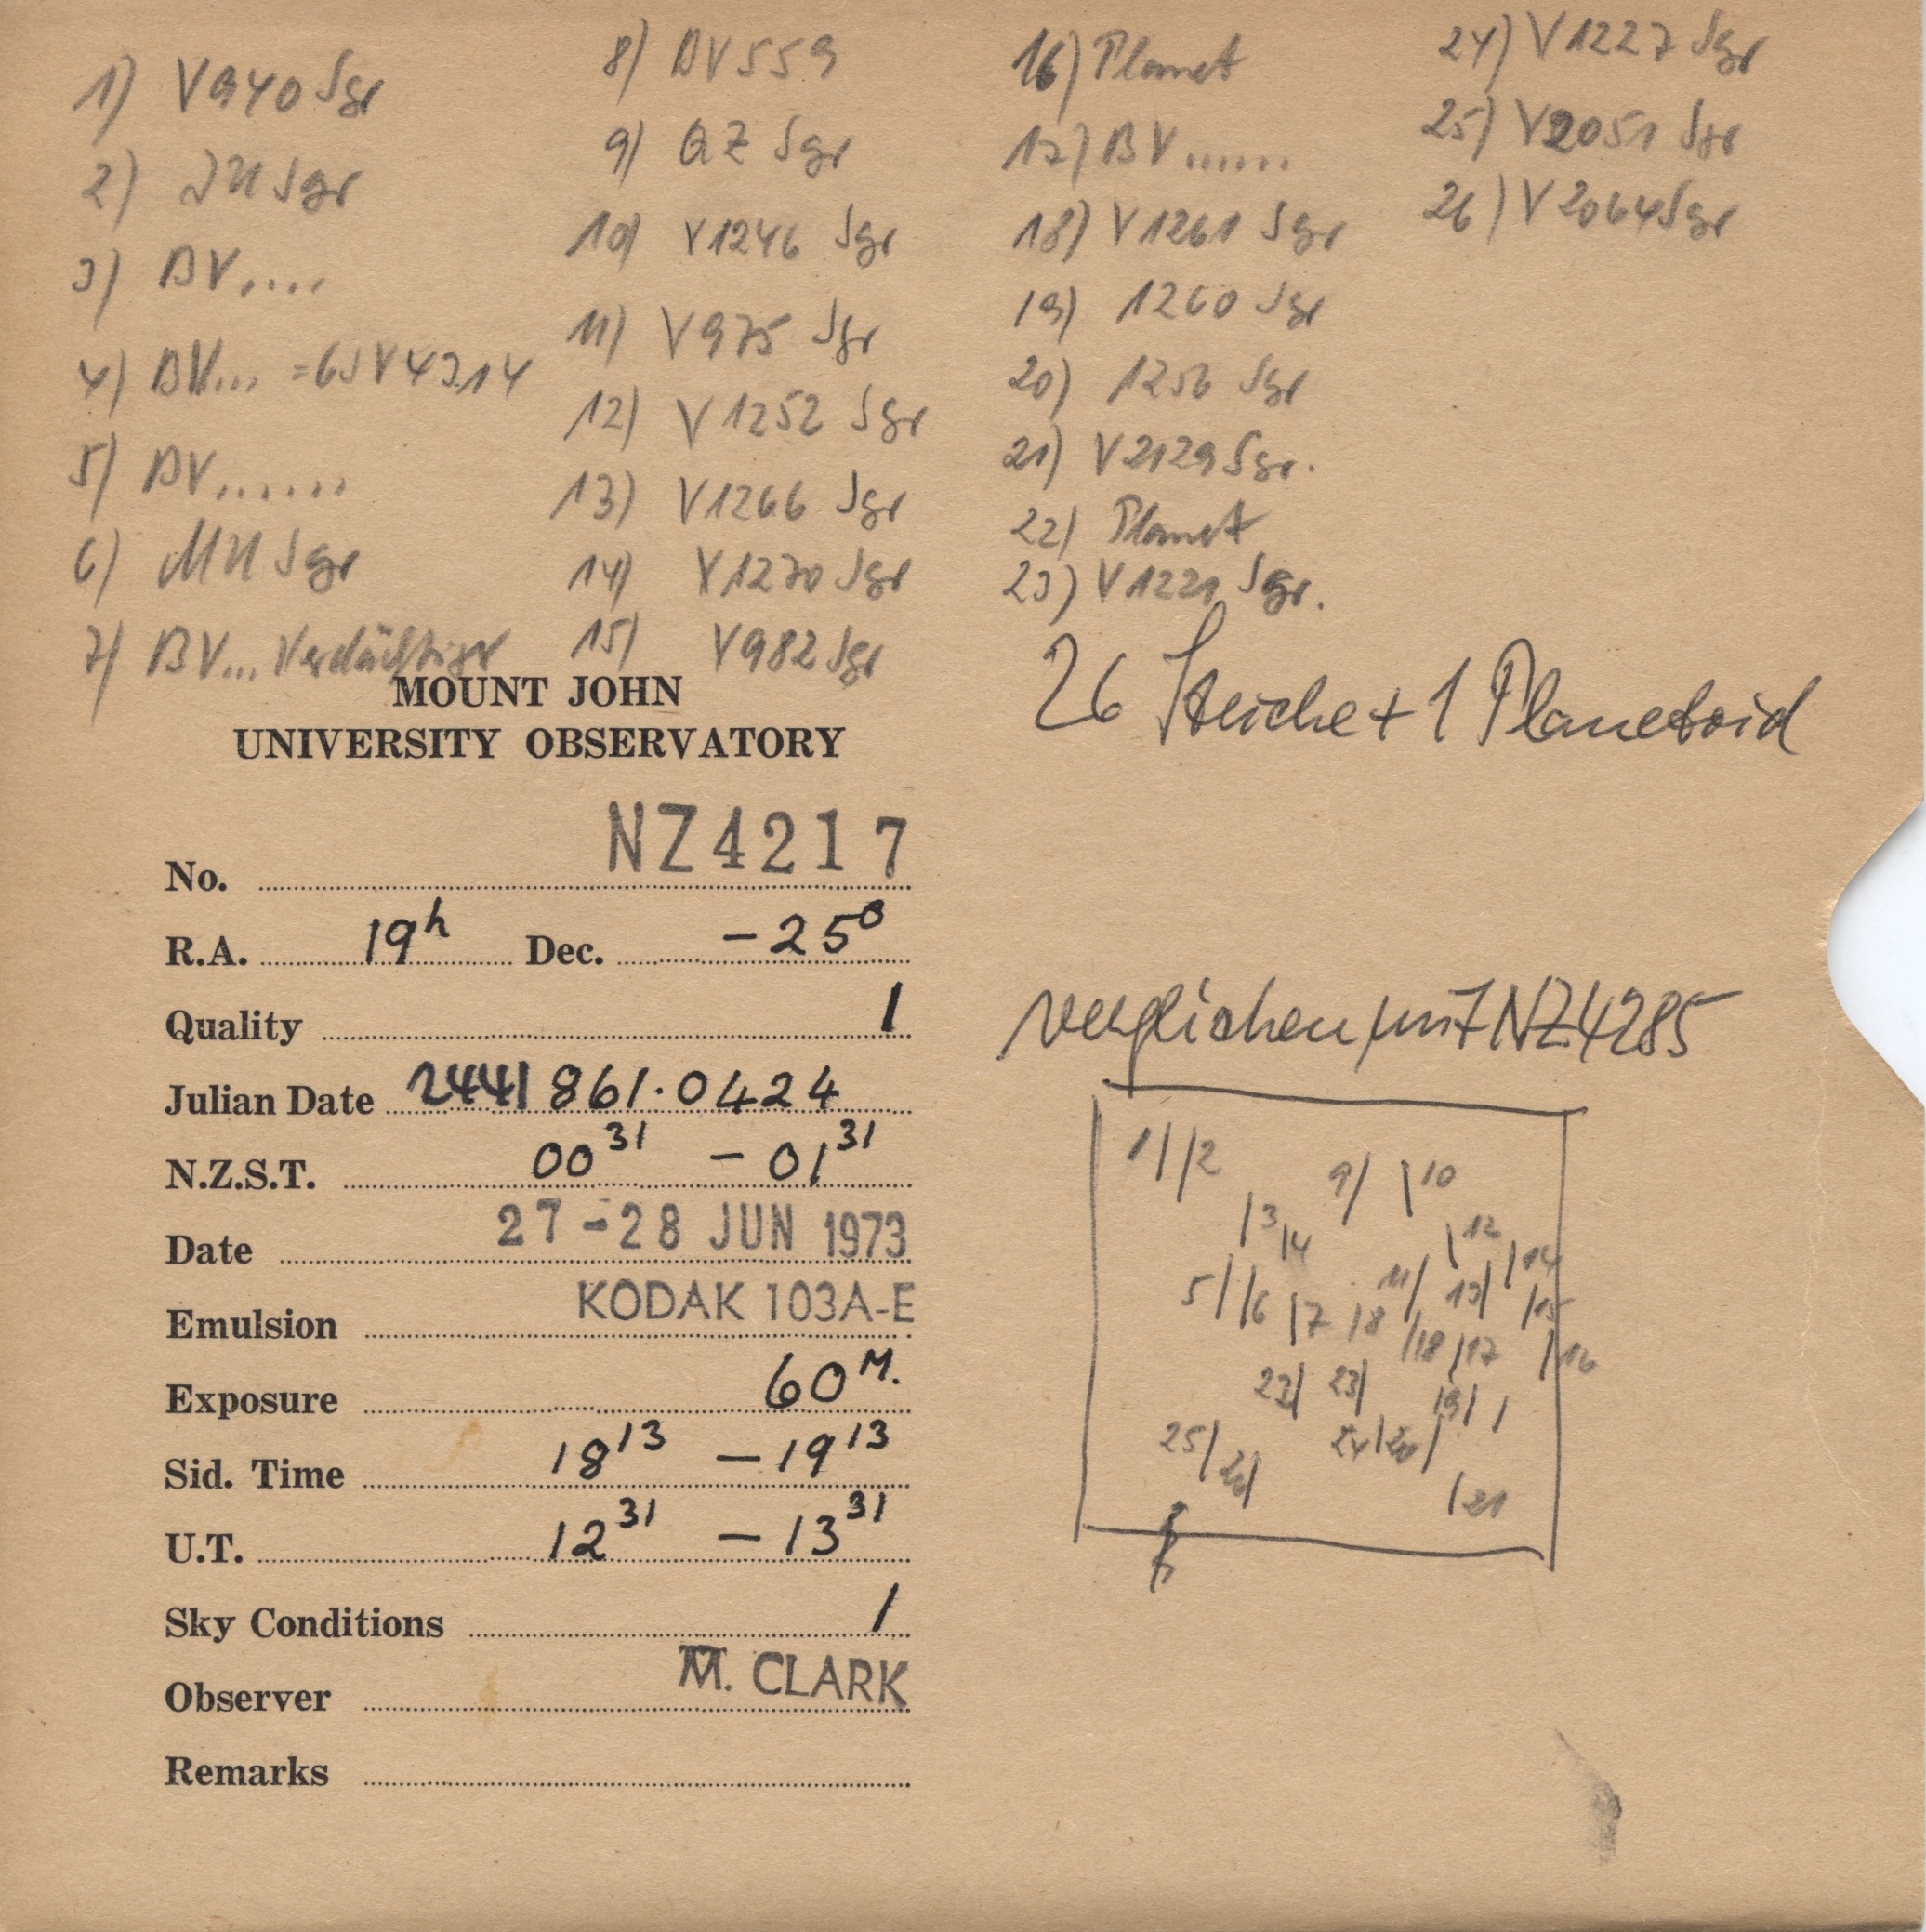 1) V940 Sgr
2) JU Sgr
3) BV....
4) BV... = CSV 4314
5) BV......
6) MU Sgr
7) BV... Verdächtiger
8) BV 559
9) QZ Sgr
10) V1246 Sgr
11) V975 Sgr
12) V1252 Sgr
13) V1266 Sgr
14) V1270 Sgr
15) V982 Sgr
16) Planet
17) BV......
18) V1261 Sgr
19) 1260 Sgr
20) 1256 Sgr
21) V2129 Sgr.
22) Planet
23) V1221 Sgr.
24) V1227 Sgr
25) V2051 Sgr
26) V2064 Sgr
26 Striche + 1 Planetoid
MOUNT JOHN
UNIVERSITY OBSERVATORY
No. NZ4217
R.A. 19h Dec. -25°
Quality 1
Julian Date 2441861.0424
N.Z.S.T. 00 31 - 01 31
Date 27-28 JUN 1973
Emulsion KODAK 103A-E
Exposure 60M.
Sid. Time 18 13 - 19 13
U.T. 12 31 - 13 31
Sky Conditions 1
Observer M. CLARK
Remarks
verglichen mit NZ4285
1/ /2
9/ \10
/3 /4 \12 /14
5/ /6 /7 /8 11/ 13/ /15
/18 /17 /16
22/ 23/ 19/ /
25/ 26/ 24/ 20/
/21